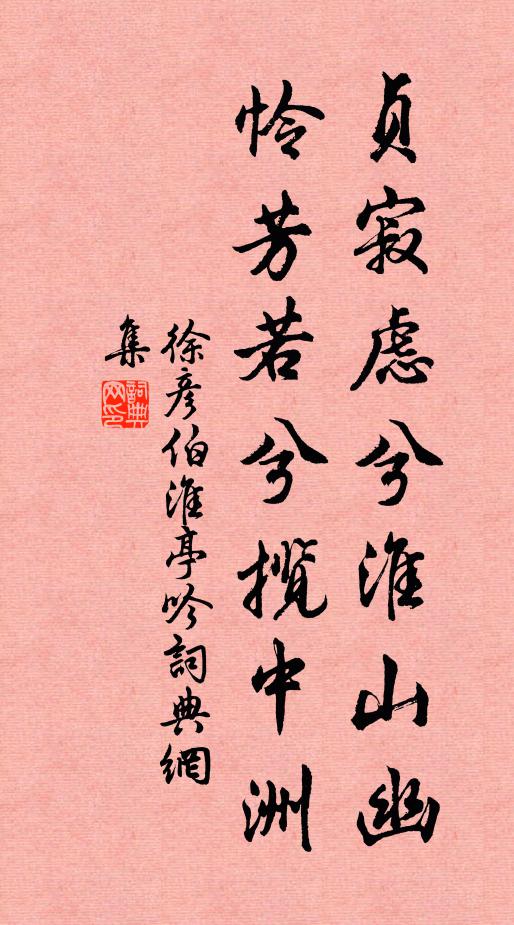 貞寂慮兮淮山幽
怜芳若兮揽中洲
徐彥伯淮亭吟詞典網
集
詞典網印